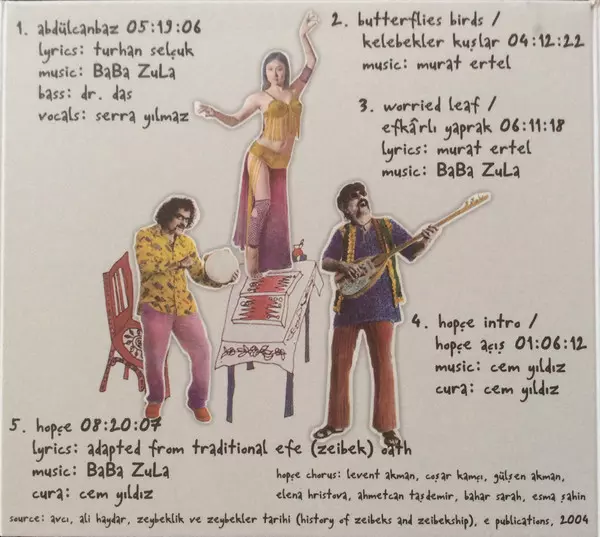 1. abdülcanbaz 05:19:06
lyrics: turhan selçuk
music: BaBa ZuLa
bass: dr. das
vocals: serra yılmaz
2. butterflies birds /
kelebekler kuşlar 04:12:22
music: murat ertel
3. worried leaf /
efkârlı yaprak 06:11:18
lyrics: murat ertel
music: BaBa ZuLa
4. hopçe intro /
hopçe açış 01:06:12
music: cem yıldız
cura: cem yıldız
5. hopçe 08:20:07
lyrics: adapted from traditional efe (zeibek) oath
music: BaBa ZuLa
cura: cem yıldız
hopçe chorus: levent akman, coşar kamçı, gülşen akman,
elena hristova, ahmetcan taşdemir, bahar sarah, esma şahin
source: avcı, ali haydar, zeybeklik ve zeybekler tarihi (history of zeibeks and zeibekship), e publications, 2004